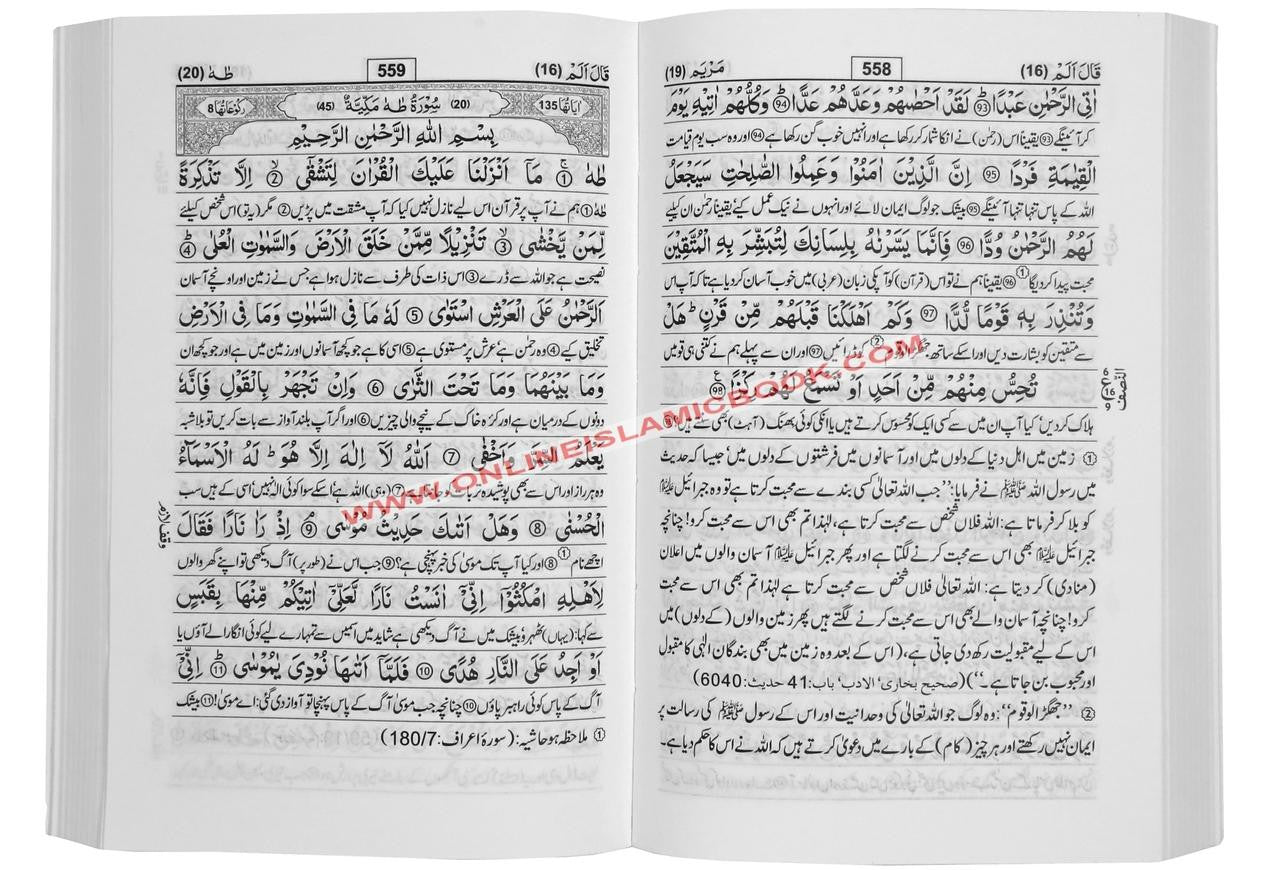 قَالَ اَلَمۡ (16)
558
مَرۡيَم (19)
اٰتِى الرَّحۡمٰنِ عَبۡدًا ؕ ﴿93﴾ لَقَدۡ اَحۡصٰٮهُمۡ وَعَدَّهُمۡ عَدًّا ؕ ﴿94﴾ وَكُلُّهُمۡ اٰتِيۡهِ يَوۡمَ
کر آئینگے ﴿93﴾ یقیناً اس (رحمٰن) نے انکا شمار کر رکھا ہے اور انہیں خوب گن رکھا ہے ﴿94﴾ اور وہ سب یوم قیامت
الۡقِيٰمَةِ فَرۡدًا ﴿95﴾ اِنَّ الَّذِيۡنَ اٰمَنُوۡا وَعَمِلُوا الصّٰلِحٰتِ سَيَجۡعَلُ
اللہ کے پاس تنہا تنہا آئینگے ﴿95﴾ بیشک جو لوگ ایمان لائے اور انہوں نے نیک عمل کیے یقیناً رحمٰن ان کیلئے
لَهُمُ الرَّحۡمٰنُ وُدًّا ﴿96﴾ فَاِنَّمَا يَسَّرۡنٰهُ بِلِسَانِكَ لِتُبَشِّرَ بِهِ الۡمُتَّقِيۡنَ
محبت پیدا کر دیگا ① ﴿96﴾ یقیناً ہم نے تو اس (قرآن) کو آپکی زبان (عربی) میں خوب آسان کر دیا ہے تاکہ آپ اس
وَتُنۡذِرَ بِهٖ قَوۡمًا لُّدًّا ﴿97﴾ وَكَمۡ اَهۡلَكۡنَا قَبۡلَهُمۡ مِّنۡ قَرۡنٍ ؕ هَلۡ
سے متقین کو بشارت دیں اور اسکے ساتھ جھگڑالو قوم ② کو ڈرائیں ﴿97﴾ اور ان سے پہلے ہم نے کتنی ہی قومیں
تُحِسُّ مِنۡهُمۡ مِّنۡ اَحَدٍ اَوۡ تَسۡمَعُ لَهُمۡ رِكۡزًا ﴿98﴾
ہلاک کر دیں' کیا آپ ان میں سے کسی ایک کو محسوس کرتے ہیں یا انکی کوئی بھنک (آہٹ) بھی سنتے ہیں؟ ﴿98﴾
① زمین میں اہل دنیا کے دلوں میں اور آسمانوں میں فرشتوں کے دلوں میں' جیسا کہ حدیث
میں رسول اللہ ﷺ نے فرمایا: ''جب اللہ تعالیٰ کسی بندے سے محبت کرتا ہے تو وہ جبرائیل ﷺ
کو بلا کر فرماتا ہے: اللہ فلاں شخص سے محبت کرتا ہے، لہٰذا تم بھی اس سے محبت کرو! چنانچہ
جبرائیل ﷺ بھی اس سے محبت کرنے لگتا ہے اور پھر جبرائیل ﷺ آسمان والوں میں اعلان
(منادی) کر دیتا ہے: اللہ تعالیٰ فلاں شخص سے محبت کرتا ہے لہٰذا تم بھی اس سے محبت
کرو! چنانچہ آسمان والے بھی اس سے محبت کرنے لگتے ہیں پھر زمین والوں (کے دلوں) میں
اس کے لیے مقبولیت رکھ دی جاتی ہے، (اس کے بعد وہ زمین میں بھی بندگان الٰہی کا مقبول
اور محبوب بن جاتا ہے۔'') (صحیح بخاری' الادب' باب: 41 حدیث: 6040)
② ''جھگڑالو قوم'': وہ لوگ جو اللہ تعالیٰ کی وحدانیت اور اس کے رسول ﷺ کی رسالت پر
ایمان نہیں رکھتے اور ہر چیز (کام) کے بارے میں دعویٰ کرتے ہیں کہ اللہ نے اس کا حکم دیا ہے۔
النصف
قَالَ اَلَمۡ (16)
559
طٰهٰ (20)
اٰيَاتُهَا 135
(20) سُوۡرَةُ طٰهٰ مَكِّيَّةٌ (45)
رُكُوۡعَاتُهَا 8
بِسۡمِ اللّٰهِ الرَّحۡمٰنِ الرَّحِيۡمِ
طٰهٰ ﴿1﴾ مَاۤ اَنۡزَلۡنَا عَلَيۡكَ الۡقُرۡاٰنَ لِتَشۡقٰٓى ﴿2﴾ اِلَّا تَذۡكِرَةً
طٰہٰ ﴿1﴾ ہم نے آپ پر قرآن اس لیے نازل نہیں کیا کہ آپ مشقت میں پڑیں ﴿2﴾ مگر (یہ تو) اس شخص کیلئے
لِّمَنۡ يَّخۡشٰى ﴿3﴾ تَنۡزِيۡلًا مِّمَّنۡ خَلَقَ الۡاَرۡضَ وَالسَّمٰوٰتِ الۡعُلٰى ؕ ﴿4﴾
نصیحت ہے جو اللہ سے ڈرے ﴿3﴾ اس ذات کی طرف سے نازل ہوا ہے جس نے زمین اور اونچے آسمان
اَلرَّحۡمٰنُ عَلَى الۡعَرۡشِ اسۡتَوٰى ﴿5﴾ لَهٗ مَا فِى السَّمٰوٰتِ وَمَا فِى الۡاَرۡضِ
تخلیق کیے ﴿4﴾ وہ رحمٰن ہے' عرش پر مستوی ہے ﴿5﴾ اسی کا ہے جو کچھ آسمانوں اور زمین میں ہے اور جو کچھ ان
وَمَا بَيۡنَهُمَا وَمَا تَحۡتَ الثَّرٰى ﴿6﴾ وَاِنۡ تَجۡهَرۡ بِالۡقَوۡلِ فَاِنَّهٗ
دونوں کے درمیان ہے اور کرۂ خاک کے نیچے والی چیزیں ﴿6﴾ اور اگر آپ بلند آواز سے بات کریں تو بلاشبہ
يَعۡلَمُ السِّرَّ وَاَخۡفٰى ﴿7﴾ اَللّٰهُ لَاۤ اِلٰهَ اِلَّا هُوَ ؕ لَهُ الۡاَسۡمَآءُ
وہ ہر راز اور اس سے بھی پوشیدہ تر بات کو جانتا ہے ﴿7﴾ (وہی) اللہ ہے' اسکے سوا کوئی الٰہ نہیں' اسی کے ہیں سب
الۡحُسۡنٰى ﴿8﴾ وَهَلۡ اَتٰٮكَ حَدِيۡثُ مُوۡسٰى ﴿9﴾ اِذۡ رَاٰ نَارًا فَقَالَ
اچھے نام ① ﴿8﴾ اور کیا آپ تک موسیٰ کی خبر پہنچی ہے؟ ﴿9﴾ جب اس نے (طور پر) آگ دیکھی تو اپنے گھر والوں
لِاَهۡلِهِ امۡكُثُوۡۤا اِنِّىۡۤ اٰنَسۡتُ نَارًا لَّعَلِّىۡۤ اٰتِيۡكُمۡ مِّنۡهَا بِقَبَسٍ
سے کہا: (یہاں) ٹھہرو' بیشک میں نے آگ دیکھی ہے شاید میں اسمیں سے تمہارے لیے کوئی انگارا لے آؤں یا
اَوۡ اَجِدُ عَلَى النَّارِ هُدًى ﴿10﴾ فَلَمَّاۤ اَتٰٮهَا نُوۡدِىَ يٰمُوۡسٰى ؕ ﴿11﴾ اِنِّىۡۤ
آگ کے پاس کوئی راہبر پاؤں ﴿10﴾ چنانچہ جب موسیٰ آگ کے پاس پہنچا تو آواز دی گئی: اے موسیٰ! ﴿11﴾ بیشک
① ملاحظہ ہو حاشیہ: (سورۂ اعراف: 180/7)
وقف لازم
WWW.ONLINEISLAMICBOOK.COM